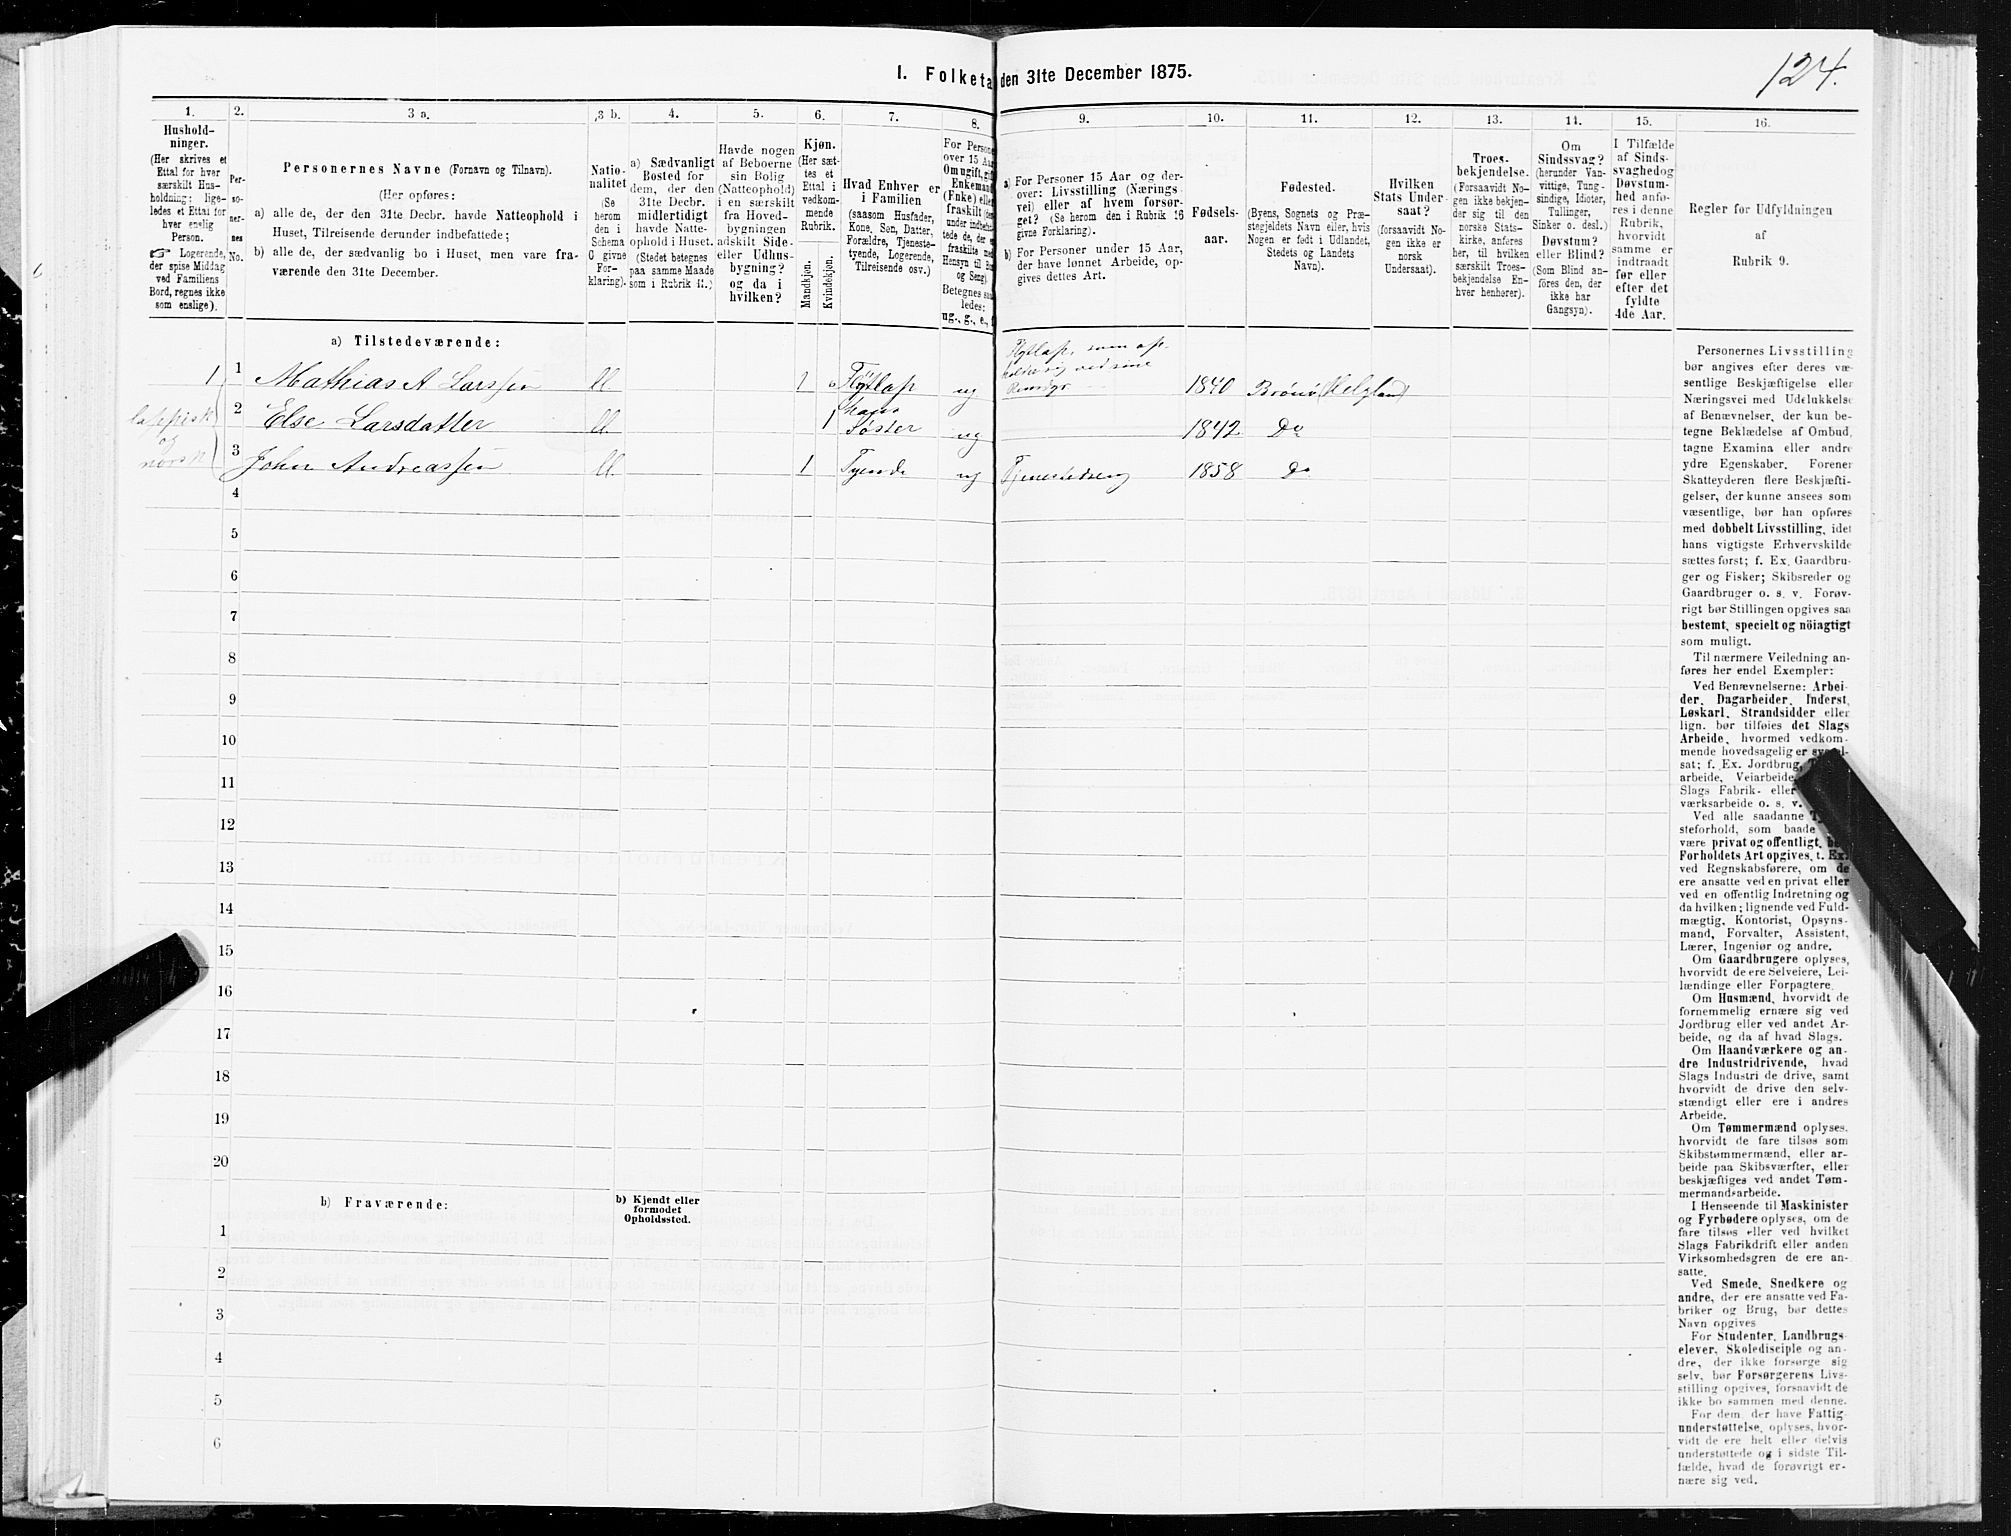 124.
I. Folketa den 31te December 1875.
1.
Hushold-
ninger.
(Her skrives et
Ettal for hver
særskilt Hus-
holdning; lige-
ledes et Ettal for
hver enslig
Person.
☞ Logerende,
der spise Middag
ved Familiens
Bord, regnes ikke
som enslige).
2.
Per-
so-
ner-
nes
No.
3 a.
Personernes Navne (Fornavn og Tilnavn).
(Her opføres:
a) alle de, der den 31te Decbr. havde Natteophold i
Huset, Tilreisende derunder indbefattede;
b) alle de, der sædvanlig bo i Huset, men vare fra-
værende den 31te December.
3 b.
Natio-
nalitet
(Se
herom
den i
Schema
C givne
For-
klaring).
4.
a) Sædvanligt
Bosted for
dem, der den
31te Decbr.
midlertidigt
havde Natte-
ophold i Huset.
(Stedet betegnes
paa samme Maade
som i Rubrik 11.)
5.
Havde nogen
af Beboerne
sin Bolig
(Natteophold)
i en særskilt
fra Hoved-
bygningen
adskilt Side-
eller Udhus-
bygning?
og da i
hvilken?
6.
Kjøn.
(Her sæt-
tes et
Ettal i
vedkom-
mende
Rubrik.
Mandkjøn.
Kvindekjøn.
7.
Hvad Enhver er
i Familien
(saasom Husfader,
Kone, Søn, Datter,
Forældre, Tjeneste-
tyende, Logerende,
Tilreisende osv.)
8.
For Persone
over 15 Aar
Om ugift, gift
Enkemand
(Enke) eller
fraskilt (
under indbefat-
tede de, der e
fraskilte med
Hensyn til Bo
og Seng).
Betegnes saa
ledes:
ug., g., e., f
9.
a) For Personer 15 Aar og der-
over: Livsstilling (Nærings-
vei) eller af hvem forsør-
get? (Se herom den i Rubrik 16
givne Forklaring).
b) For Personer under 15 Aar,
der have lønnet Arbeide, op-
gives dettes Art.
10.
Fødsels-
aar.
11.
Fødested.
(Byens, Sognets og Præ-
stegjeldets Navn eller, hvis
Nogen er født i Udlandet,
Stedets og Landets
Navn).
12.
Hvilken
Stats Under-
saat?
(forsaavidt No-
gen ikke er
norsk
Undersaat).
13.
Troes-
bekjendelse.
(Forsaavidt No-
gen ikke bekjen-
der sig til den
norske Stats-
kirke, anføres
her, til hvilken
særskilt Troes-
bekjendelse En-
hver henhører).
14.
Om
Sindssvag?
(herunder Van-
vittige, Tung-
sindige, Idioter,
Tullinger,
Sinker o. desl.)
Døvstum?
eller Blind?
(Som Blind an-
føres den, der
ikke har
Gangsyn).
15.
I Tilfælde
af Sinds-
svaghed og
Døvstum-
hed anfø-
res i denne
Rubrik,
hvorvidt
samme er
indtraadt
før eller
efter det
fyldte
4de Aar.
16.
Regler før Udfyldningen
af
Rubrik 9.
a) Tilstedeværende:
Flytlap, som op-
holder sig ved sine
Rensdyr
1 1 Mathias A Larssen 1 Flytlap ug 1840 Brønø (Helgland)
lappisk
og
norsk
2 Else Larsdatter 1 Hans Søster ug 1842 Do
3 John Andreassen 1 Tyende ug Tjenestedreng 1858 Do
4
5
6
7
8
9
10
11
12
13
14
15
16
17
18
19
20
b) Fraværende:
b) Kjendt eller
formodet
Opholdssted.
1
2
3
4
5
6
Personernes Livsstilling
bør angives efter deres væ-
sentlige Beskjæftigelse eller
Næringsvei med Udelukkelse
af Benævnelser, der kun be-
tegne Beklædelse af Ombud,
tagne Examina eller andre
ydre Egenskaber. Forener
Skatteyderen flere Beskjæfti-
gelser, der kunne ansees som
væsentlige, bør han opføres
med dobbelt Livsstilling, idet
hans vigtigste Erhvervskilde
sættes først; f. Ex. Gaardbru-
ger og Fisker; Skibsreder og
Gaardbruger o. s. v. Forøv-
rigt bør Stillingen opgives saa
bestemt, specielt og nöiagtigt
som muligt.
Til nærmere Veiledning an-
føres her endel Exempler:
Ved Benævnelserne: Arbei-
der, Dagarbeider, Inderst,
Løskarl, Strandsidder eller
lign. bør tilføies det Slags
Arbeide, hvormed vedkom-
mende hovedsagelig er syssel-
sat; f. Ex. Jordbrug,
arbeide, Veiarbeide,
Slags Fabrik- eller
værksarbeide o. s. v.
Ved alle saadanne
steforhold, som baade
være privat og offentligt,
Forholdets Art opgives, t. Ex.
ved Regnskabsførere, om de
ere ansatte ved en privat eller
ved en offentlig Indretning og
da hvilken; lignende ved Fuld-
mægtig, Kontorist, Opsyns-
mand, Forvalter, Assistent,
Lærer, Ingeniør og andre.
Om Gaardbrugere oplyses,
hvorvidt de ere Selveiere, Lei-
lændinge eller Forpagtere.
Om Husmænd, hvorvidt de
fornemmelig ernære sig ved
Jordbrug eller ved andet Ar-
beide, og da af hvad Slags.
Om Haandværkere og an-
dre Industridrivende, hvad
Slags Industri de drive, samt
hvorvidt de drive den selv-
stændigt eller ere i andres
Arbeide.
Om Tømmermænd oplyses,
hvorvidt de fare tilsøs som
Skibstømmermænd, eller ar-
beide paa Skibsværfter, eller
beskjæftiges ved andet Tøm-
mermandsarbeide.
I Henseende til Maskinister
og Fyrbødere oplyses, om de
fare tilsøs eller ved hvilket
Slags Fabrikdrift eller anden
Virksomhedsgren de ere an-
satte.
Ved Smede, Snedkere og
andre, der ere ansatte ved Fa-
briker og Brug, bør dettes
Navn opgives
For Studenter, Landbrugs-
elever, Skoledisciple og an-
dre, der ikke forsørge sig
selv, bør Forsørgerens Livs-
stilling opgives, forsaavidt de
ikke bo sammen med denne.
For dem, der have Fattig-
understøttelse, oplyses, hvor-
vidt de ere helt eller delvis
understøttede og i sidste Til-
fælde, hvad de forøvrigt er-
nære sig ved.